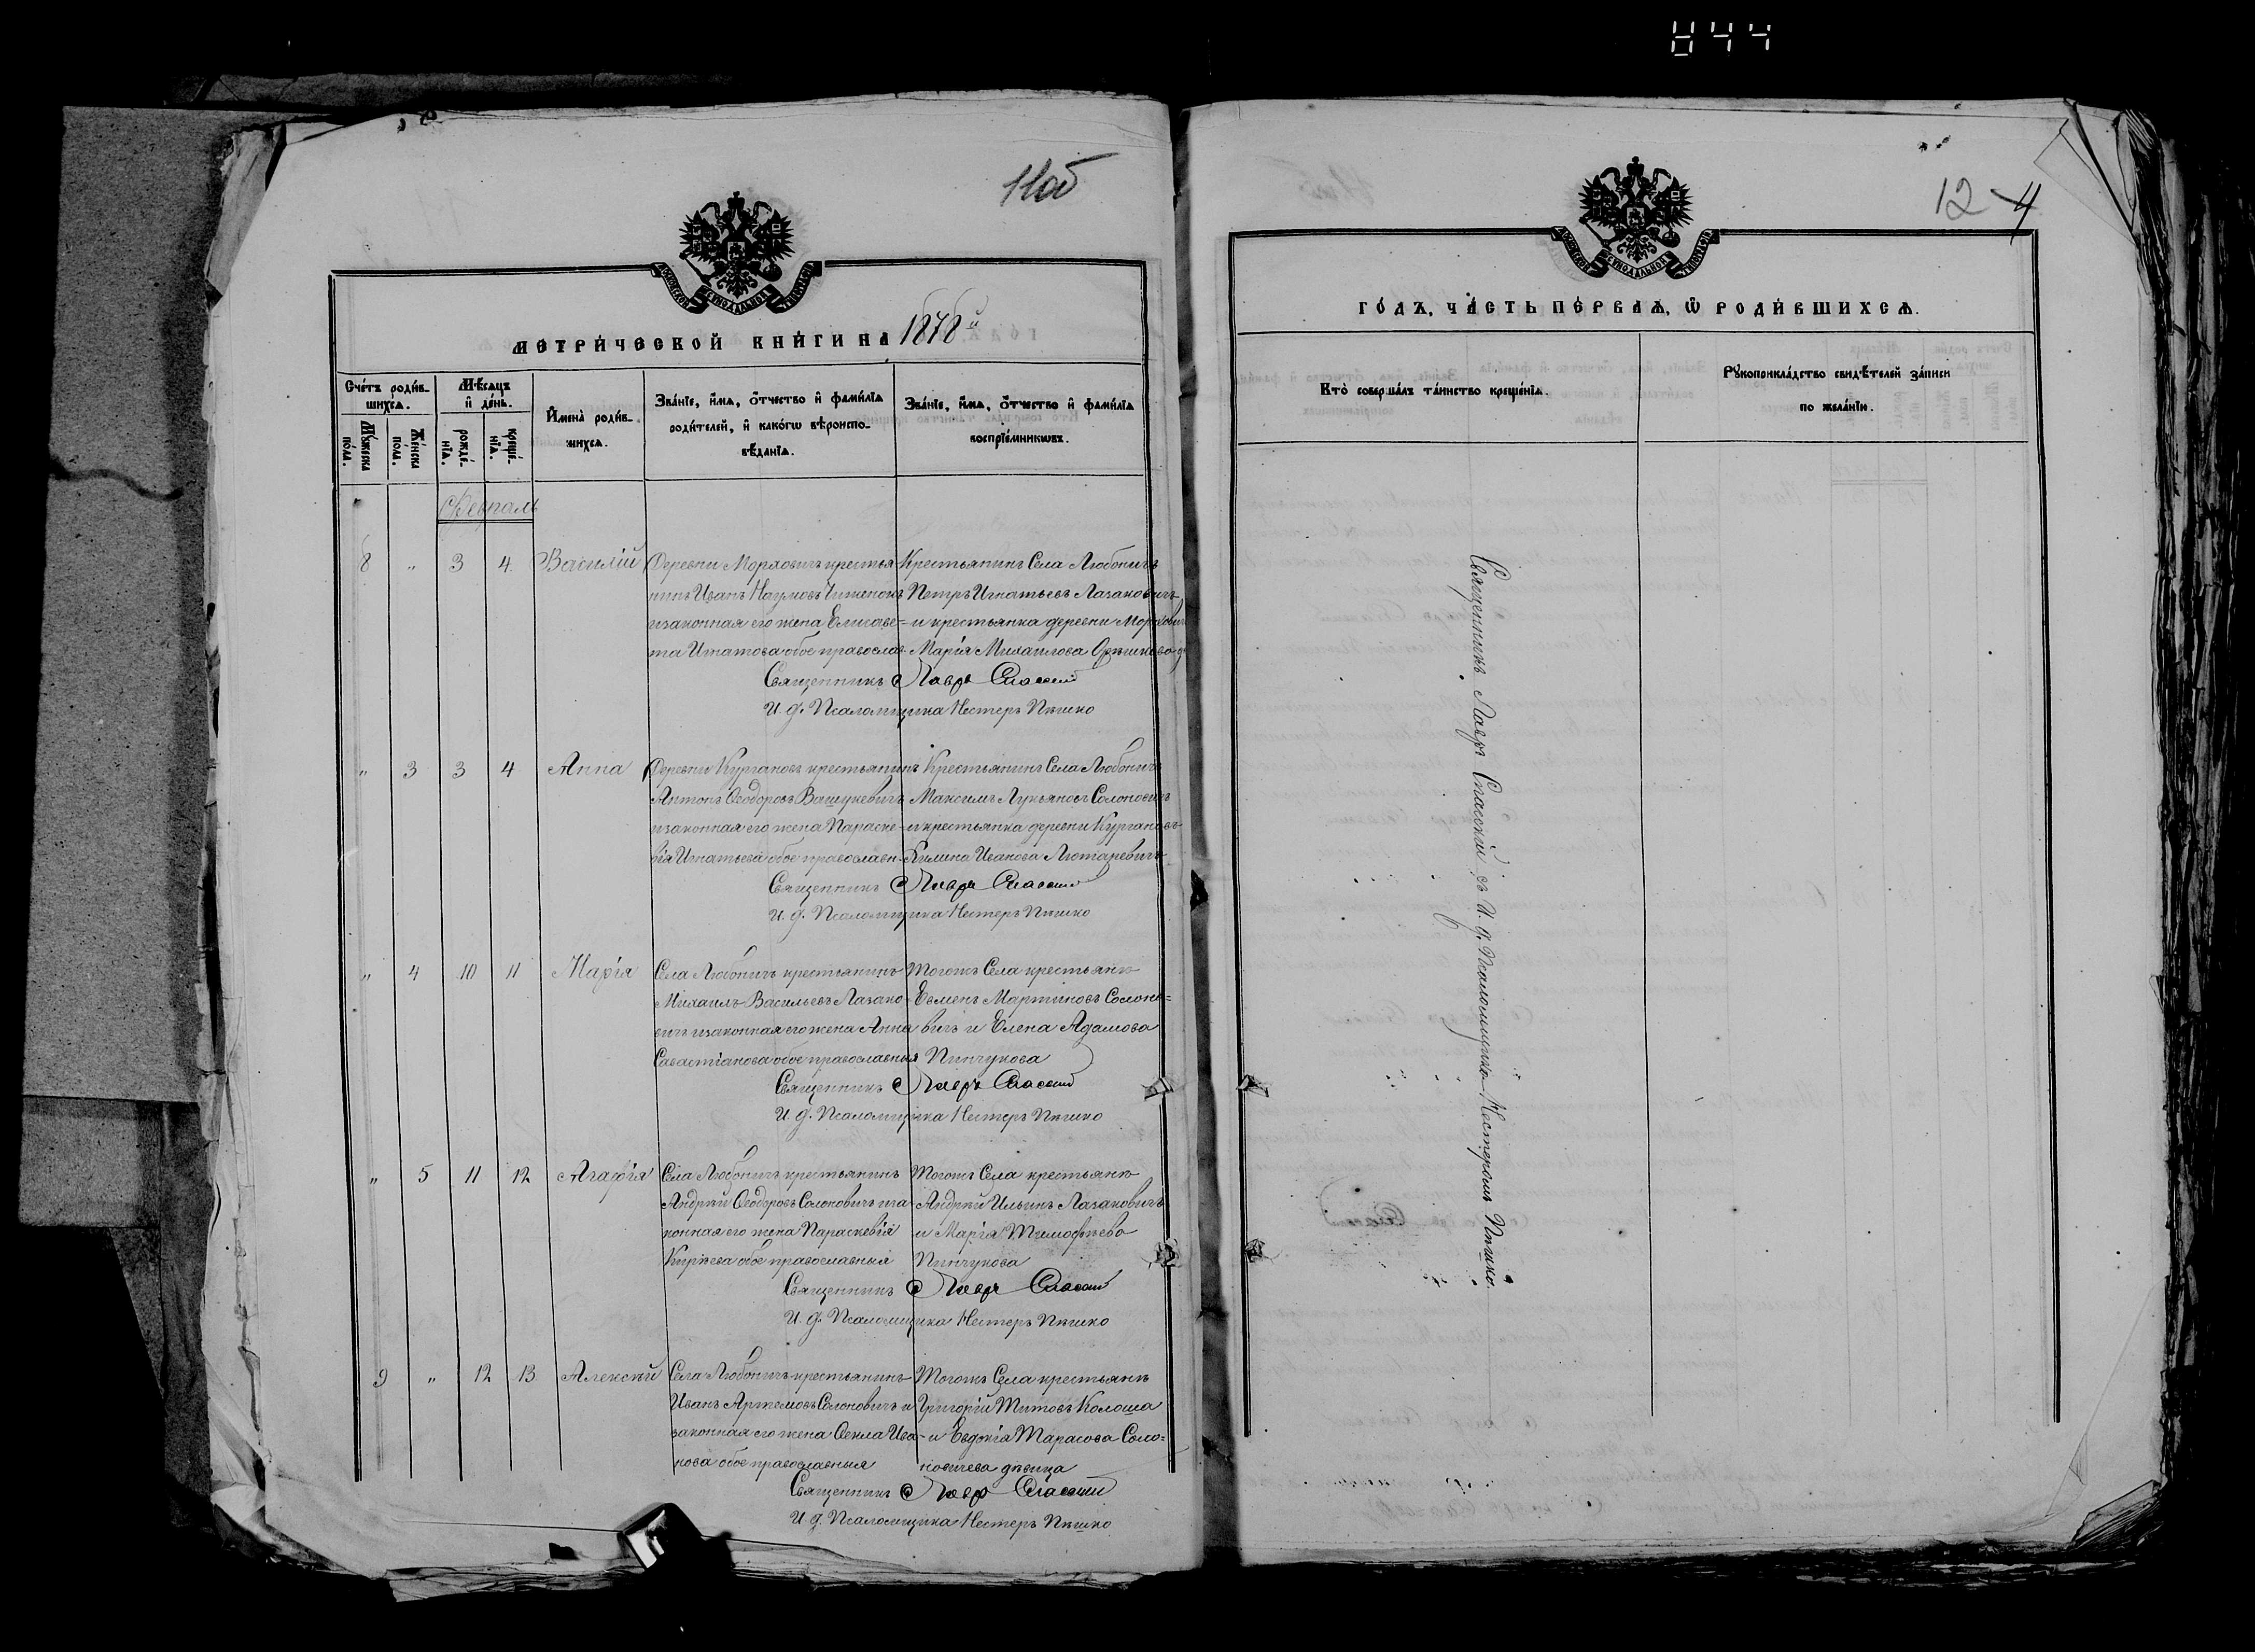 844
11об
12 4
МОСКОВСКОЙ СѴНОДАЛЬНОЙ ТИПОГРАФІИ
МЕТРИ́ЧЕСКОЙ КНИ́ГИ НА 1878й
Сче́тъ роди́в-
шихсѧ.
Мꙋ́жеска по́ла.
Же́нска по́ла.
Мѣ́сѧцъ и҆ де́нь.
рожде́-нїѧ.
креще́-нїѧ.
И҆мена̀ роди́в-
шихсѧ.
Зва́нїе, и҆́мѧ, ѻ҆́тчество и҆ фами́лїѧ
роди́телей, и҆ како́гѡ вѣроиспо-
вѣ́данїѧ.
Зва́нїе, и҆́мѧ, ѻ҆́тчество и҆ фами́лїѧ
воспрїе́мникѡвъ.
Февраль
8 " 3 4 Василій
Деревни Морховичъ крестья
нинъ Иванъ Наумовъ
и законная его жена Елисаве-
та Игнатова обое православ.
Крестьянинъ Села Любоничъ
Петръ Игнатьевъ Лазаковичъ
и крестьянка деревни Морхович
Марія Михаилова
Священникъ Лавръ Спасскій
И. д. Псаломщика Нестеръ Пѣшко
" 3 3 4 Анна
Деревни Кургановъ крестьянинъ
Антонъ Ѳеодоровъ Вашукевичъ
и законная его жена Параске-
вія Игнатьева обое православн.
Крестьянинъ Села Любоничъ
Максимъ Лукьяновъ Солоновичъ
и крестьянка деревни Кургановъ
Акилина Иванова Лютаревичъ
Священникъ Лавръ Спасскій
И. д. Псаломщика Нестеръ Пѣшко
" 4 10 11 Марія
Села Любоничъ крестьянинъ
Михаилъ Васильевъ Лазако-
вичъ и законная его жена Анна
Савастіанова обое православныя
Тогожъ Села крестьянѣ
Евменъ Мартиновъ Солоно=
вичъ и Елена Адамова
Пинчукова
Священникъ Лавръ Спасскій
И. д. Псаломщика Нестеръ Пѣшко
" 5 11 12 Агафія
Села Любоничъ крестьянинъ
Андрей Ѳеодоровъ Солоновичъ и за-
конная его жена Параскевія
Кирѣева обое православныя
Тогожъ Села крестьянѣ
Андрей Ильинъ Лазаковичъ
и Марія Тимофѣева
Пинчукова
Священникъ Лавръ Спасскій
И. д. Псаломщика Нестеръ Пѣшко
9 " 12 13 Алексѣй
Села Любоничъ крестьянинъ
Иванъ Артемовъ Солоновичъ и
законная его жена Ѳекла Ива-
нова обое православныя
Тогожъ Села крестьянѣ
Григорій Титовъ Колоша
и Евдокія Тарасова Соло=
новичева дѣвица
Священникъ Лавръ Спасскій
И. д. Псаломщика Нестеръ Пѣшко
МОСКОВСКОЙ СѴНОДАЛЬНОЙ ТИПОГРАФІИ
ГО́ДЪ, ЧА́СТЬ ПЕ́РВАѦ, Ѽ РОДИ́ВШИХСѦ.
Кто̀ соверша́лъ та́инство креще́нїѧ.
Рꙋкоприкла́дство свидѣ́телей за́писи
по жела́нїю.
Священникъ Лавръ Спасскій съ И. д. Псаломщика Нестеромъ Пѣшко.